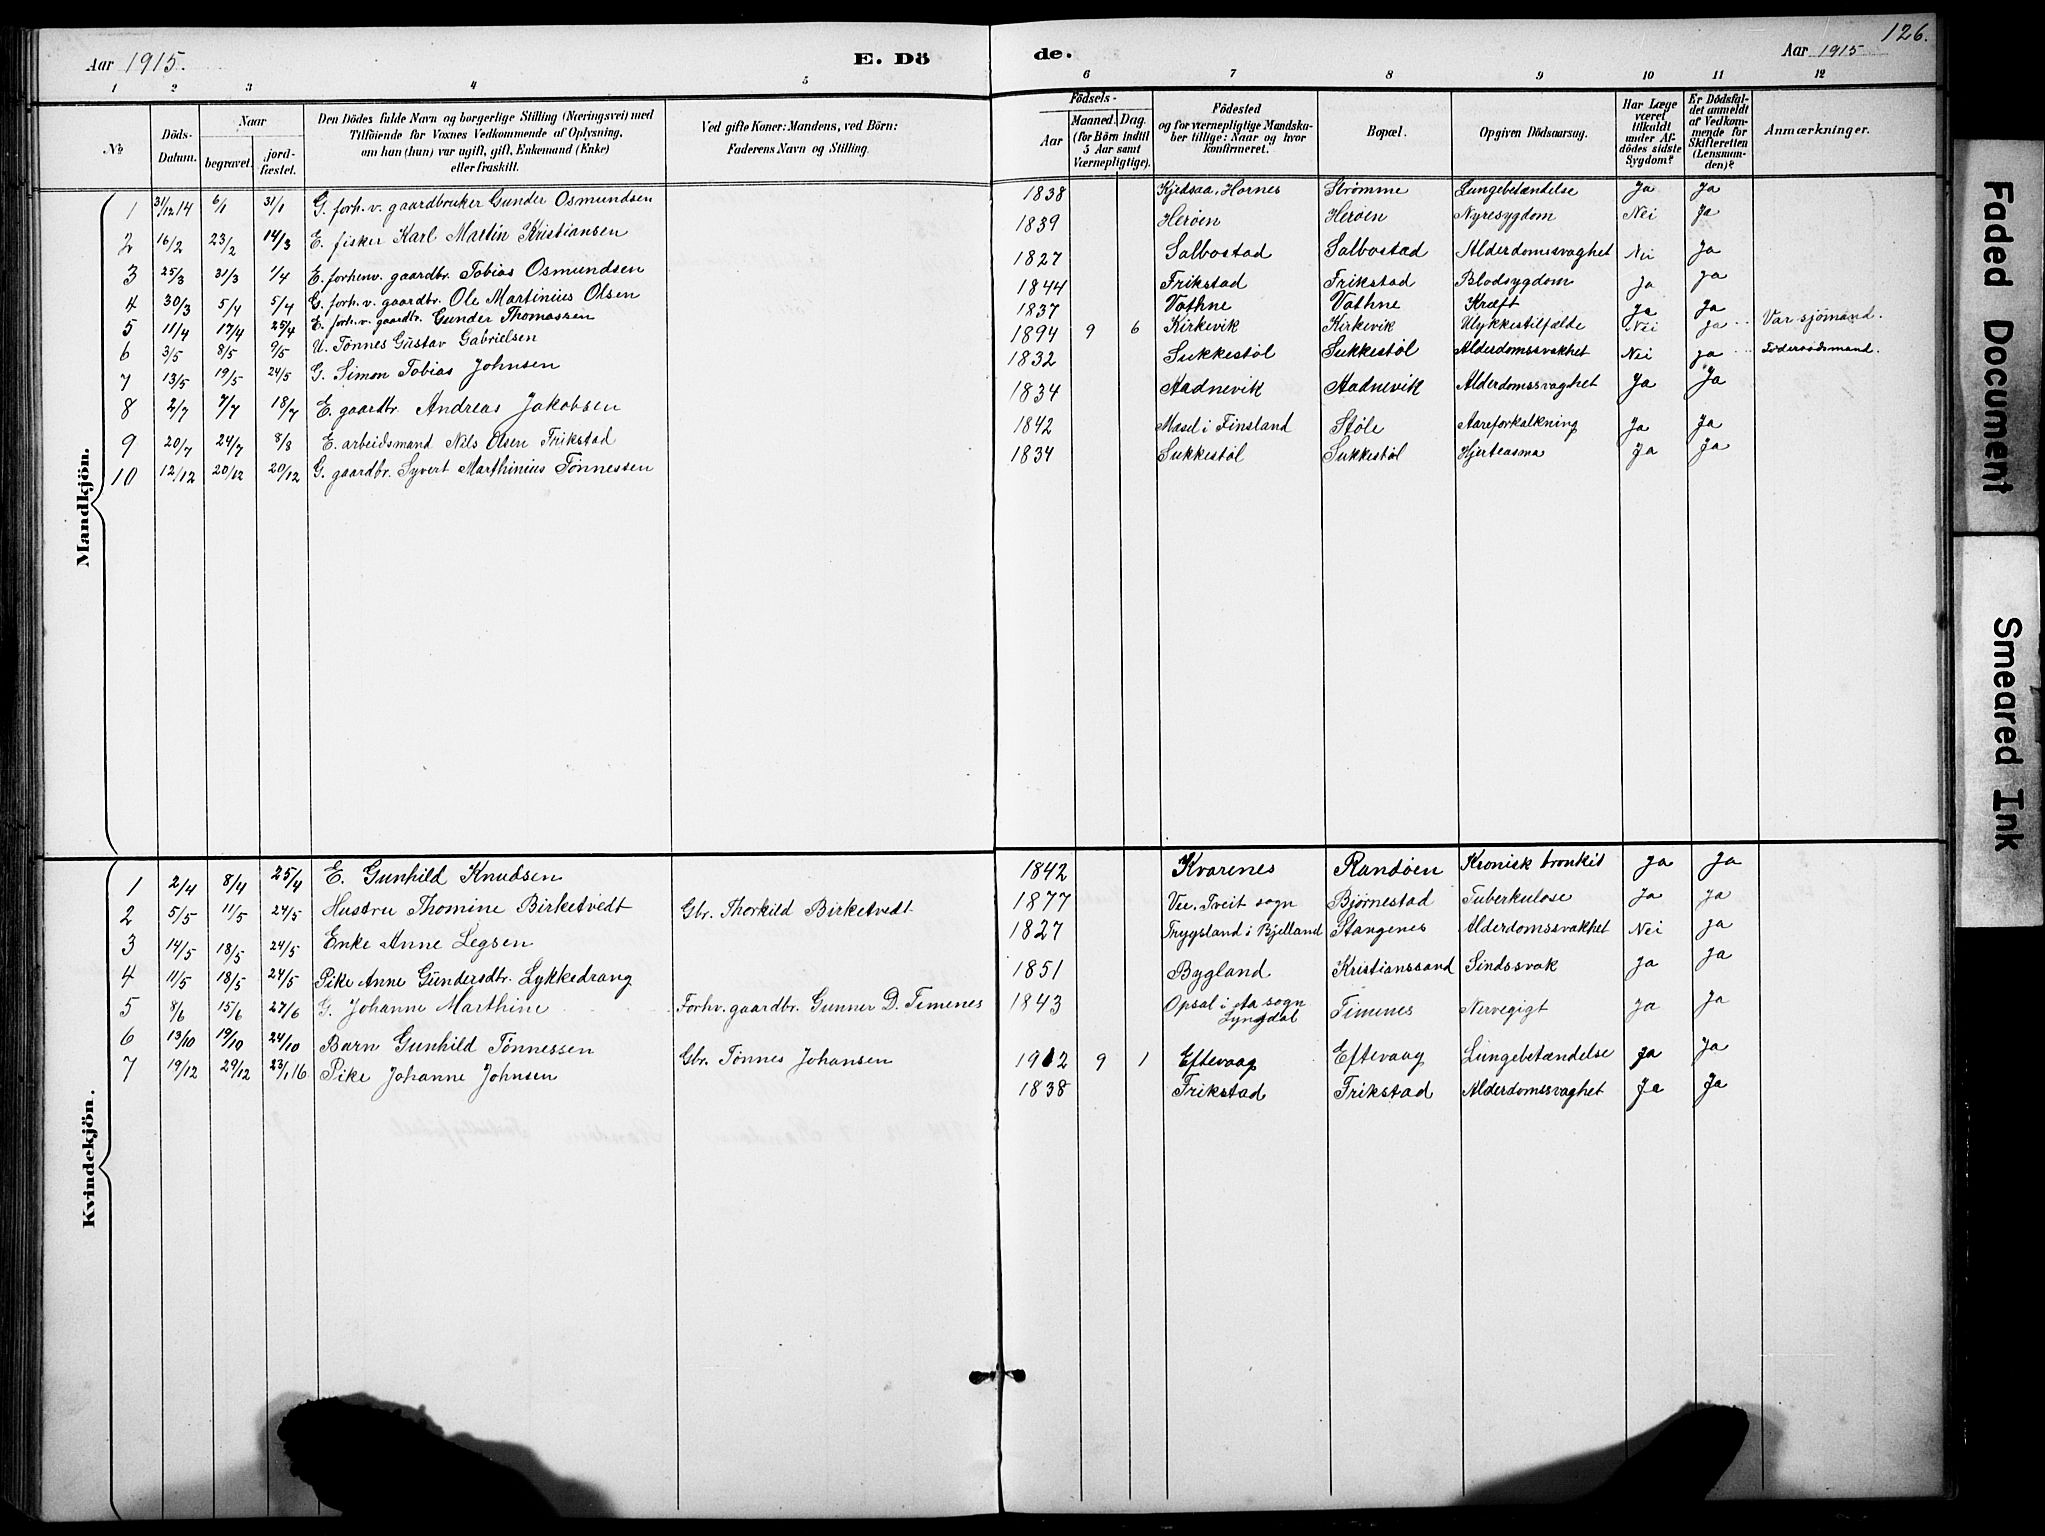 Aar 1915. E. Dö de. Aar 1915 126.
1 2 3 4 5 6 7 8 9 10 11 12
No Döds-Datum. Naar begravet. jordfæstet. Den Dödes fulde Navn og borgerlige Stilling (Næringsvei) med Tilföiende for Voxnes Vedkommende af Oplysning, om han (hun) var ugift, gift, Enkemand (Enke) eller fraskilt. Ved gifte Koner: Mandens, ved Börn: Faderens Navn og Stilling. Födsels- Aar Maaned. Dag. (for Börn indtil 5 Aar samt Værnepligtige). Födested og for værnepligtige Mandskaber tillige: Naar og hvor konfirmeret. Bopæl. Opgiven Dödsaarsag. Har Læge været tilkaldt under Afdödes sidste Sygdom? Er Dödsfaldet anmeldt af Vedkommende for Skifteretten (Lensmanden)? Anmærkninger.
Mandkjön.
1 31/12 14 6/1 31/1 G. forh. v. gaardbruker Gunder Osmundsen 1838 Kjetsaa, Hornes Strømme Lungebetændelse Ja Ja
2 16/2 23/2 14/3 E. fisker Karl Martin Kristiansen 1839 Herøen Herøen Nyresygdom Nei Ja
3 25/3 31/3 1/4 E. forhenv. gaardbr. Tobias Osmundsen 1827 Salbostad Salbostad Alderdomssvaghet Nei Ja
4 30/3 5/4 5/4 G. forh. v. gaardbr. Ole Martinius Olsen 1844 Frikstad Frikstad Blodsygdom Ja Ja
5 11/4 17/4 25/4 E. forh. v. gaardbr. Gunder Thomassen 1837 Vathne Vathne Kræft Ja Ja
6 3/5 8/5 9/5 U. Tønnes Gustav Gabrielsen 1894 9 6 Kirkevik Kirkevik Ulykkestilfælde Nei Ja Var sjømand.
7 13/5 19/5 24/5 G. Simon Tobias Johnsen 1832 Sukkestøl Sukkestøl Alderdomssvakhet Nei Ja Føderaadsmand.
8 2/7 7/7 18/7 E. gaardbr. Andreas Jakobsen 1834 Aadnevik Aadnevik Alderdomssvaghet Ja Ja
9 20/7 24/7 8/8 E. arbeidsmand Nils Olsen Frikstad 1842 Mæsel i Finsland Støle Aareforkalkning Ja Ja
10 12/12 20/12 20/12 G. gaardbr. Syvert Marthinius Tønnessen 1834 Sukkestøl Sukkestøl Hjerteasma Ja Ja
Kvindekjön.
1 2/4 8/4 25/4 E. Gunhild Knudsen 1842 Kvarenes Randøen Kronisk bronkit Ja Ja
2 5/5 11/5 24/5 Hustru Thomine Birketvedt Gbr. Thorkild Birketvedt 1877 Vee. Treit sogn Bjørnestad Tuberkulose Ja Ja
3 14/5 18/5 24/5 Enke Anne Legsen 1827 Trygsland i Bjelland Stangenes Alderdomssvakhet Nei Ja
4 11/5 18/5 24/5 Pike Anne Gundersdtr. Lykkedrang 1851 Bygland Kristianssand Sindssvak Ja Ja
5 8/6 15/6 27/6 G. Johanne Marthine Forhv. gaardbr. Gunner D. Timenes 1843 Opsal i Aa sogn Lyngdal Timenes Nervegigt Ja Ja
6 13/10 19/10 24/10 Barn Gunhild Tønnessen Gbr. Tønnes Johansen 1912 9 1 Eftevaag Eftevaag Lungebetændelse Ja Ja
7 19/12 29/12 23/1 16 Pike Johanne Johnsen 1838 Frikstad Frikstad Alderdomssvaghet Ja Ja
Faded Document
Smeared Ink